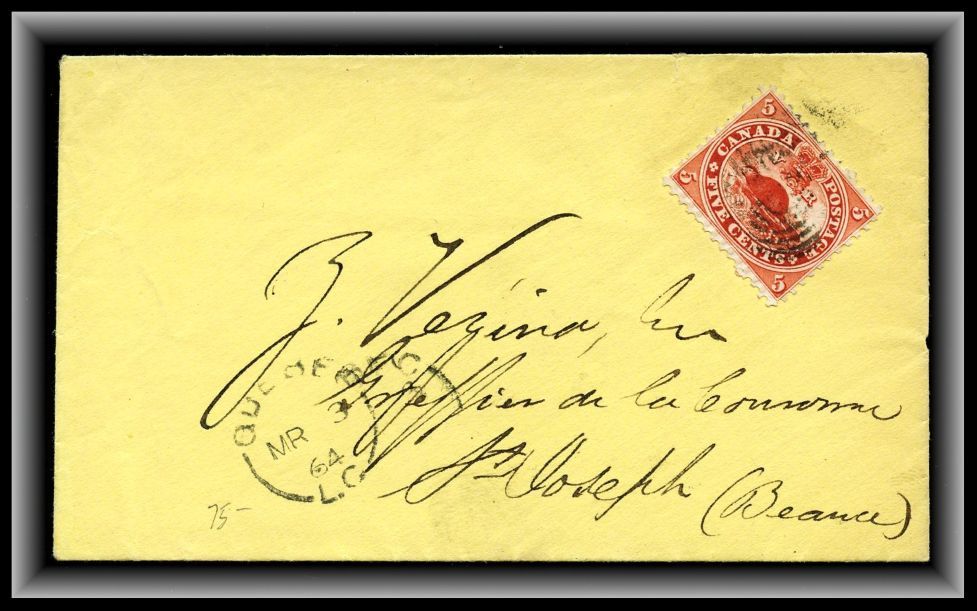 CANADA POSTAGE
FIVE CENTS
5 5
5 5
Z. Vezina,
Greffier de la Couronne
St Joseph
(Beauce)
QUEBEC
MR 3
64
L.C
75-